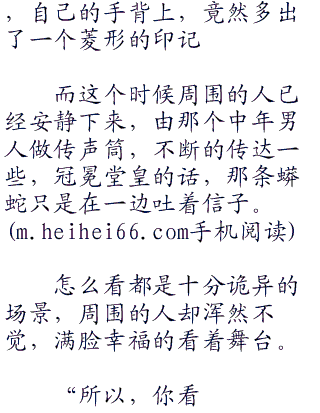 ，自己的手背上，竟然多出
了一个菱形的印记
而这个时候周围的人已
经安静下来，由那个中年男
人做传声筒，不断的传达一
些，冠冕堂皇的话，那条蟒
蛇只是在一边吐着信子。
(m.heihei66.com手机阅读)
怎么看都是十分诡异的
场景，周围的人却浑然不
觉，满脸幸福的看着舞台。
“所以，你看